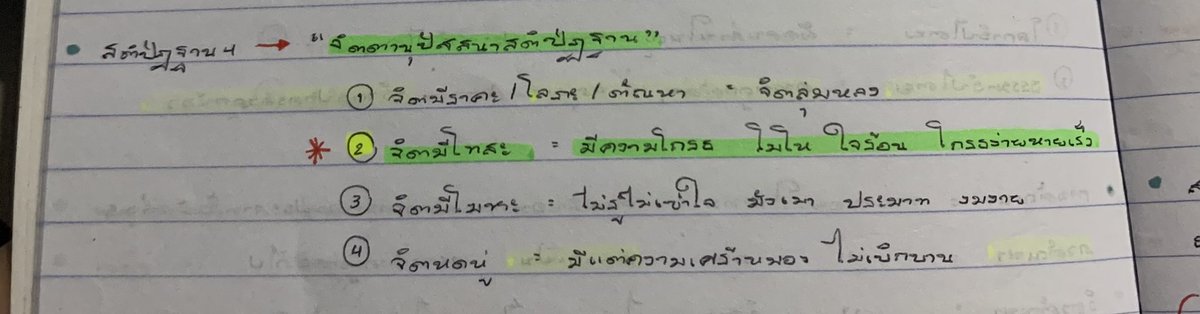 สติปัฏฐาน 4 → "จิตตานุปัสสนาสติปัฏฐาน"
① จิตมีราคะ / โลภะ / ตัณหา = จิตลุ่มหลง
* ② จิตมีโทสะ = มีความโกรธ โมโห ใจร้อน โกรธง่ายหายเร็ว
③ จิตมีโมหะ = ไม่รู้ไม่เข้าใจ มัวเมา ประมาท งมงาย
④ จิตหดหู่ = มีแต่ความเศร้าหมอง ไม่เบิกบาน